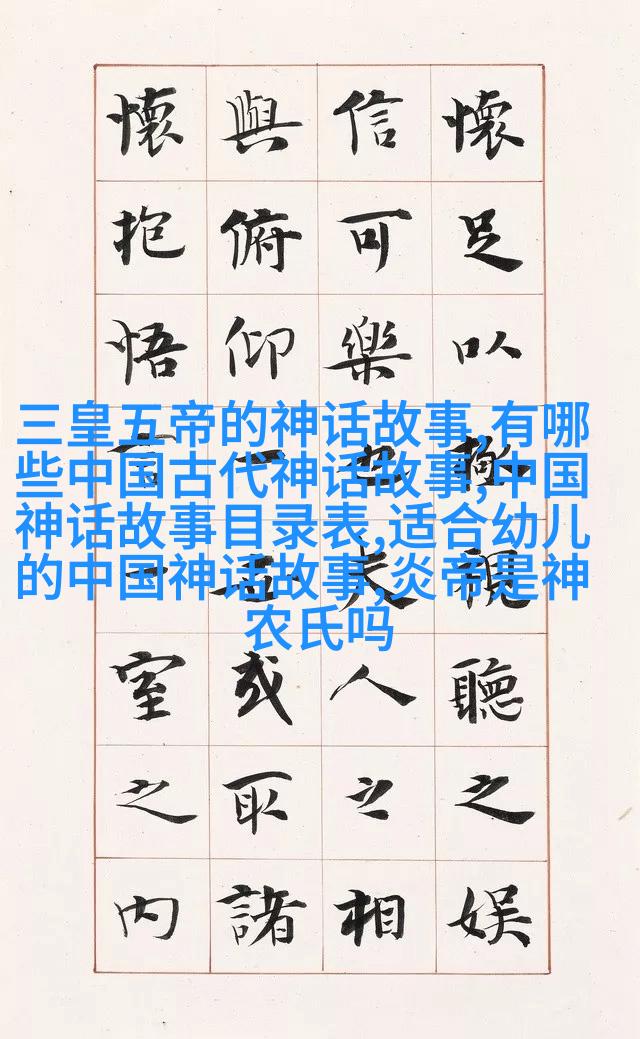 懷足以極視聽之娛
信可樂也夫人之相
與俯仰一世或取諸
懷抱悟言一室之內
三皇五帝的神话故事,有哪
些中国古代神话故事,中国
神话故事目录表,适合幼儿
的中国神话故事,炎帝是神
农氏吗